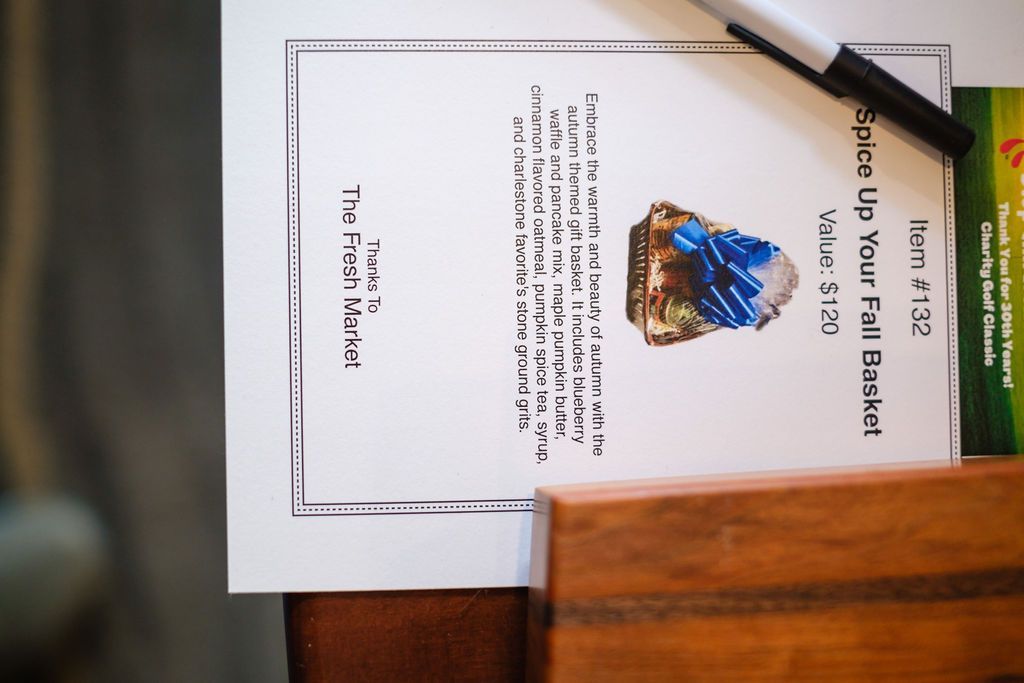 Thank You for 30th Years!
Charity Golf Classic
Item #132
Spice Up Your Fall Basket
Value: $120
Embrace the warmth and beauty of autumn with the
autumn themed gift basket. It includes blueberry
waffle and pancake mix, maple pumpkin butter,
cinnamon flavored oatmeal, pumpkin spice tea, syrup,
and charlestone favorite's stone ground grits.
Thanks To
The Fresh Market